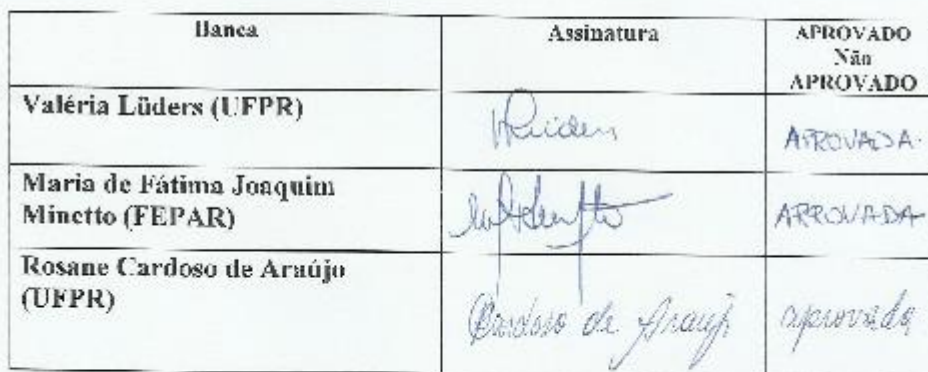 Banca Assinatura APROVADO
Não
APROVADO
Valéria Lüders (UFPR) APROVADA.
Maria de Fátima Joaquim
Minetto (FEPAR) APROVADA
Rosane Cardoso de Araújo
(UFPR) Cardoso de Araújo aprovada